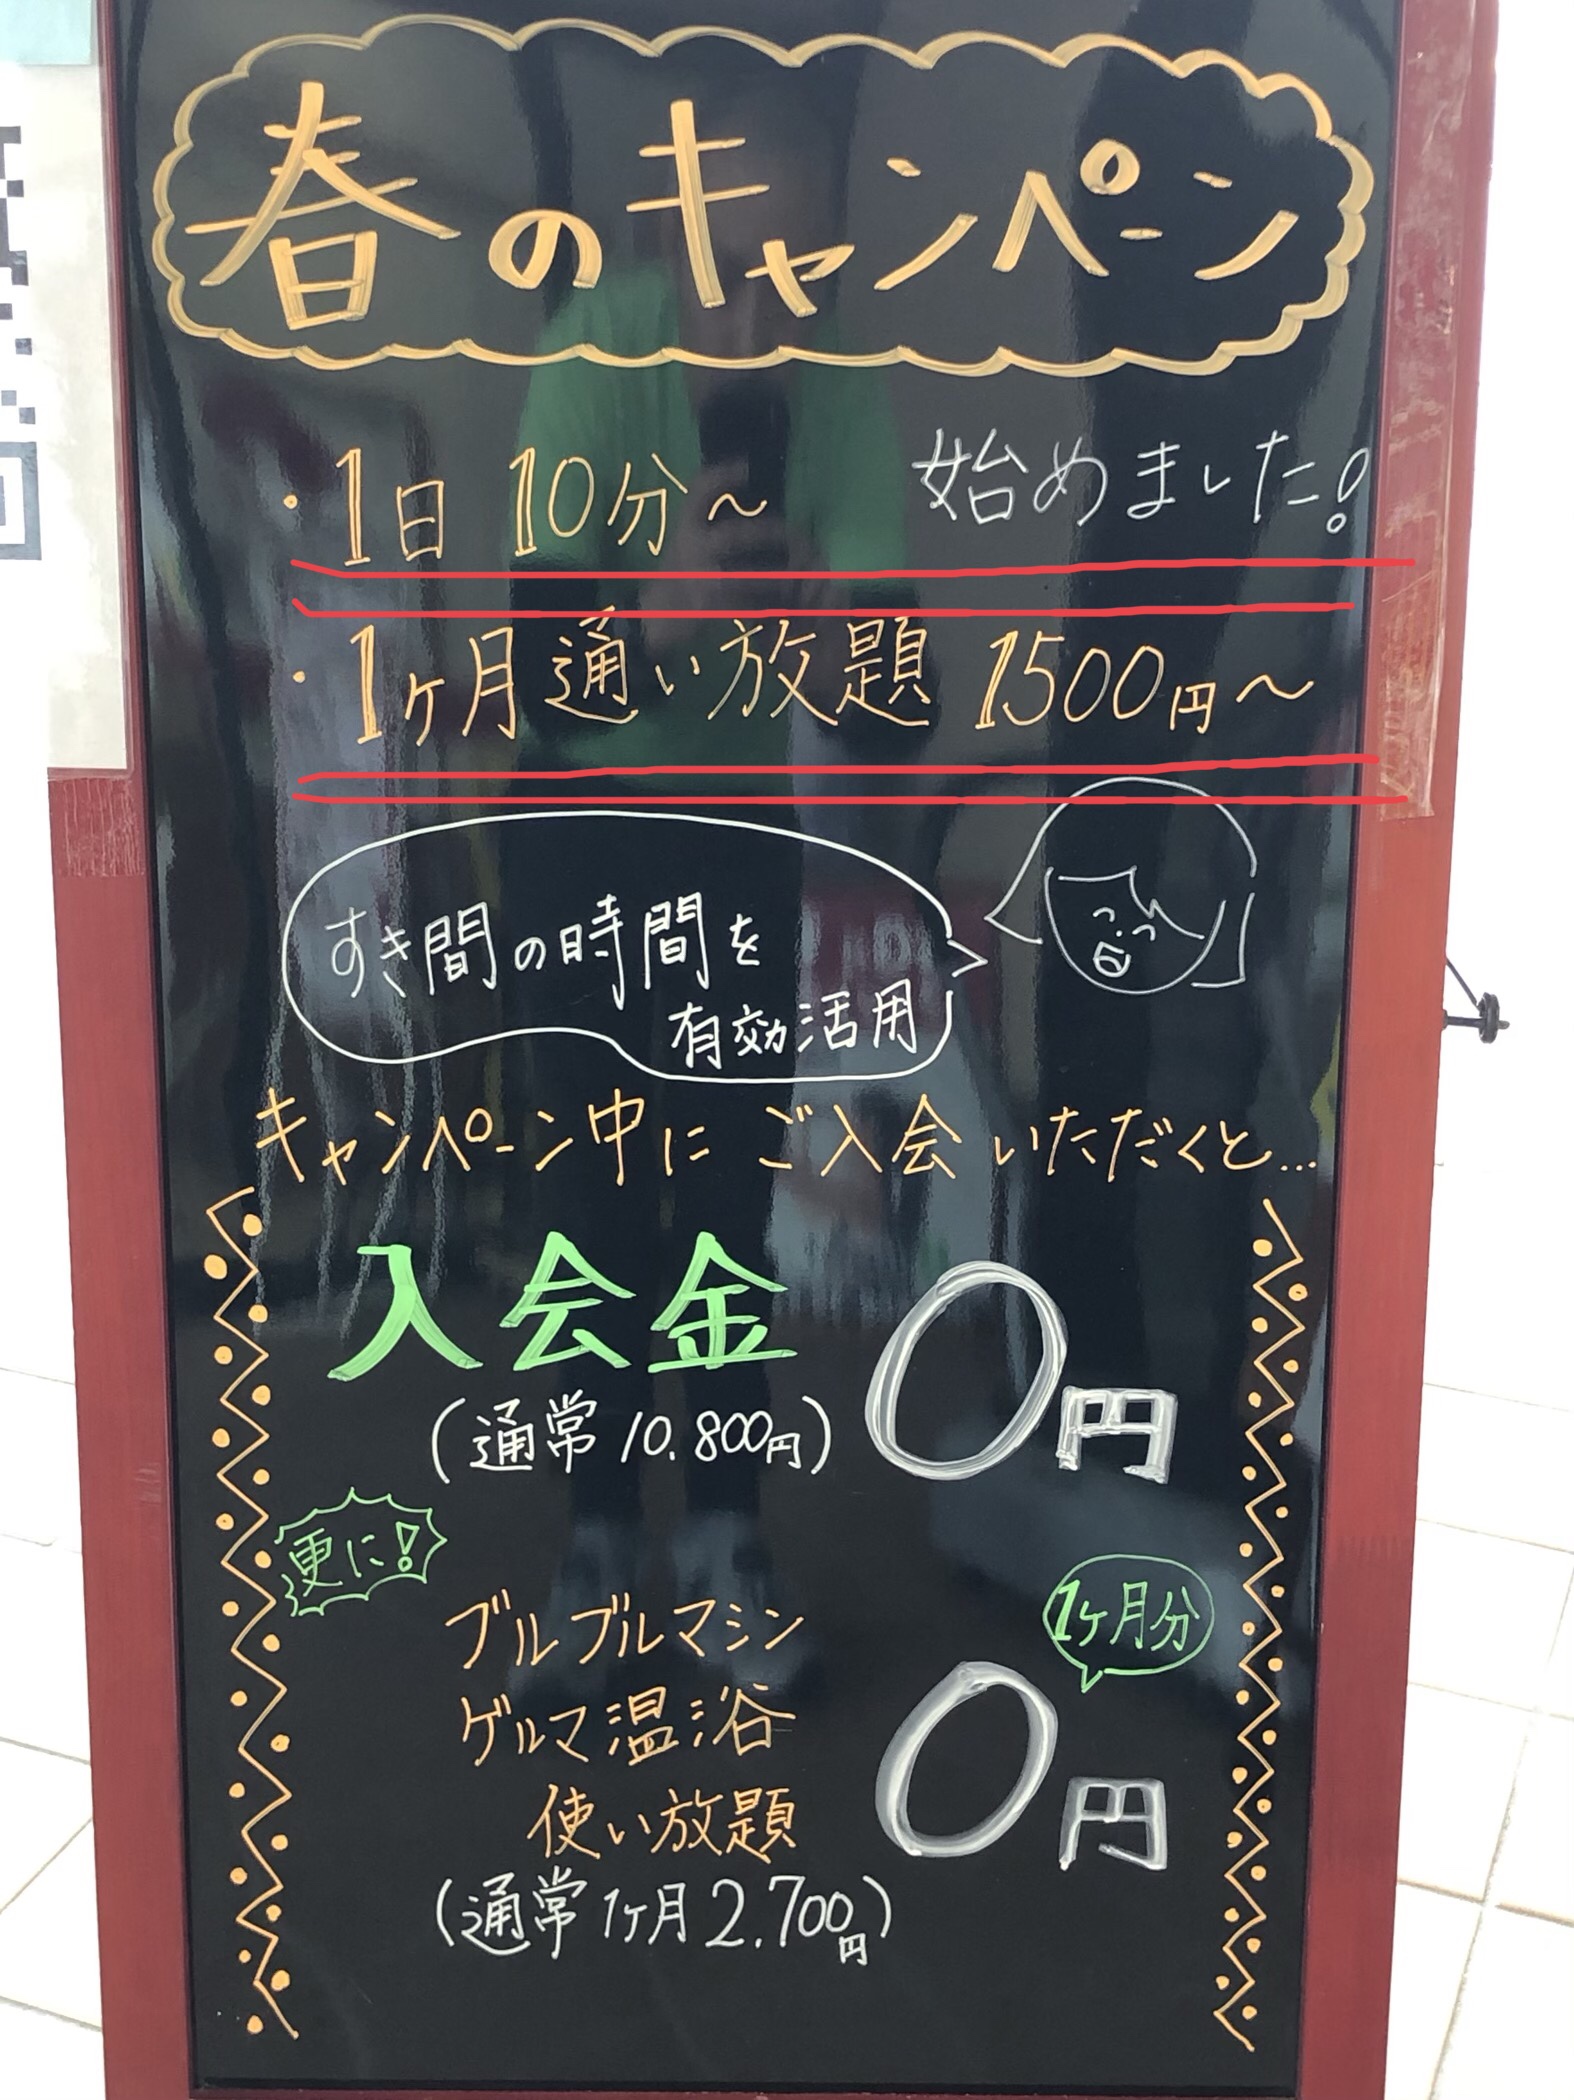 春のキャンペーン
・1日 10分〜 始めました!
・1ヶ月通い放題 1500円〜
すき間の時間を
有効活用
キャンペーン中に ご入会いただくと...
入会金 0円
(通常 10.800円)
更に!
1ヶ月分
ブルブルマシン
ゲルマ温浴
使い放題
0円
(通常1ヶ月2.700円)